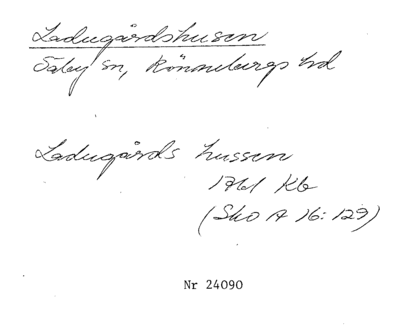 Ladugårdshusen
Säby sn, Rönnebergs hd
Ladugårds hussen
1761 Kb
(Sko A 16:129)
Nr 24090